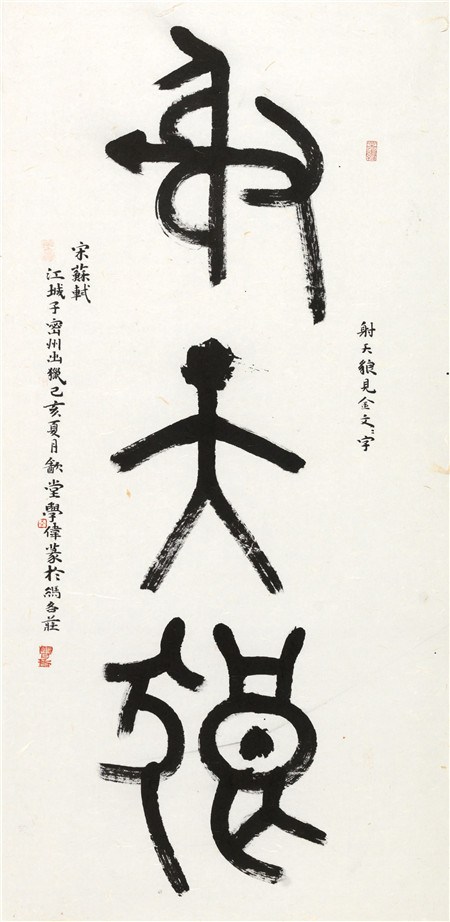 射天狼見金文〻字
射天狼
宋蘇軾
江城子密州出獵己亥夏月堂學偉篆於各莊